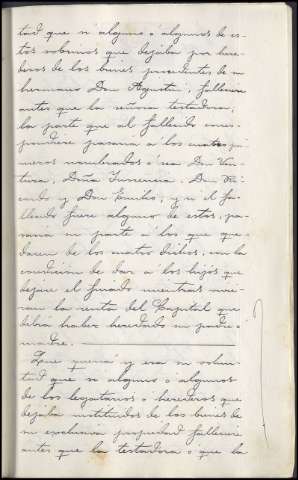 tad que si alguno ó algunos de es-
tos sobrinos que dejaba por here-
deros de los bienes procedentes de su
hermano Don Agustin, falleciere
antes que la señora testadora,
la parte que al fallecido corres-
pondiere pasaria a los cuatro pri-
meros nombrados ó sea Don Ven-
tura, Doña Inocencia, Don
cundo y Don Emilio, y si el fa-
llecido fuere alguno de estos, pa-
saria su parte á los que que-
daren de los cuatro dichos, con la
condicion de dar a los hijos que
dejare el finado mientras vivie-
ran la renta del Capital que
debia haber heredado su padre ó
madre.
Que queria y era su volun-
tad que si alguno ó algunos
de los legatarios ó herederos que
dejaba instituidos de los bienes de
su exclusiva propiedad falleciere
antes que la testadora ó que la